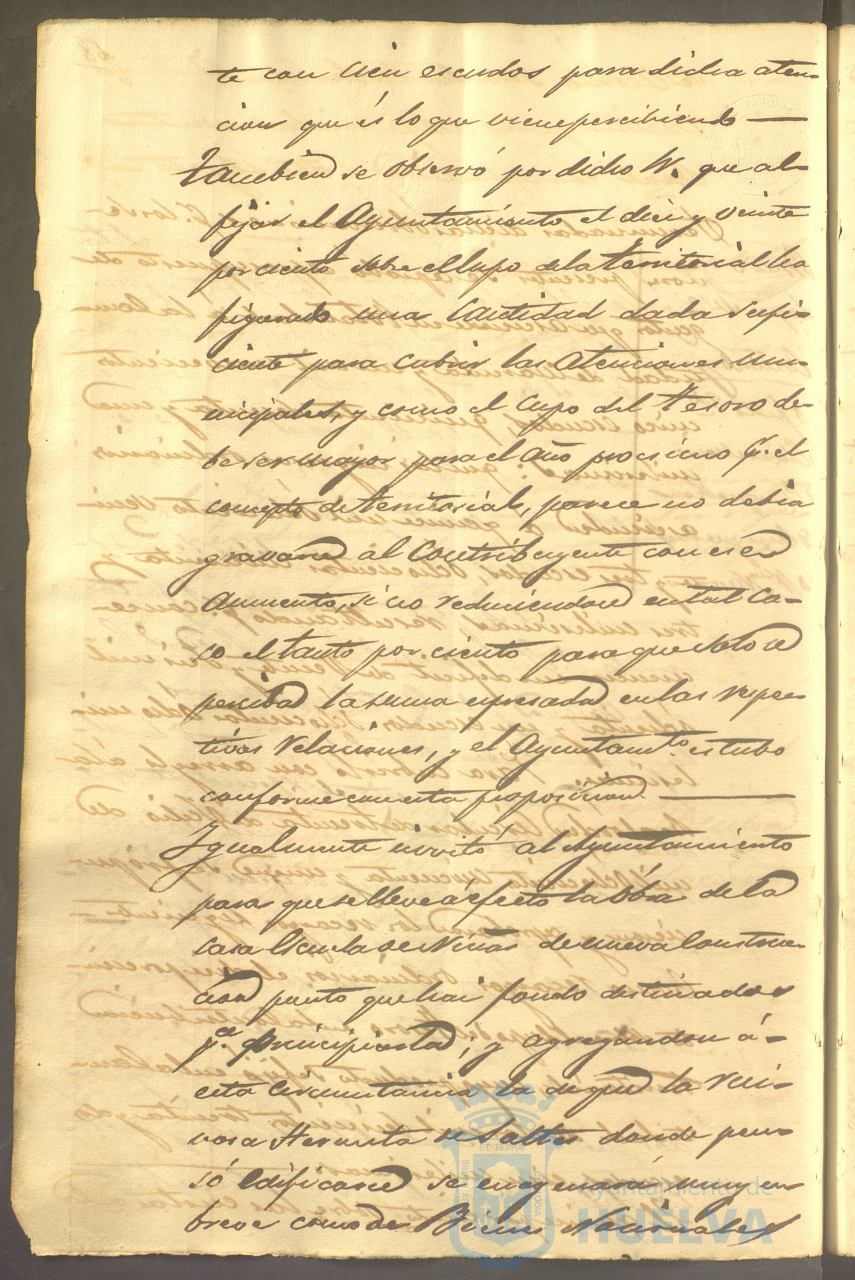 te con cien escudos para dicha aten-
cion que és lo que viene percibiendo —
Tambien se observó por dicho Sr. que al
fijar el Ayuntamiento el diez y veinte
por ciento sobre el cupo de la territorial ha
figurado una Cantidad dada sufi-
ciente para cubrir las atenciones mu-
nicipales, y como el Cupo del Tesoro de-
be ser mayor para el año procsimo pr. el
concepto de territorial, parece no debia
gravarse al Contribuyente con ese
Aumento, si no reduciendose en tal Ca-
so el tanto por ciento para que solo se
perciba la suma espresada en las respec-
tivas Relaciones, y el Ayuntamto. estubo
conforme con esta proposicion —
Ygualmente invitó al Ayuntamiento
para que se lleve á efecto la Obra de la
Casa Escuela de Niñas de nueva Construc-
cion puesto que hai fondo destinados
pa. principiarla; y agregandose á
esta circunstancia la de que la
Hermita de Saltes donde pen-
só edificarse se enagenará muy en
breve como de Bienes Nacionales
Ayuntamiento de
HUELVA